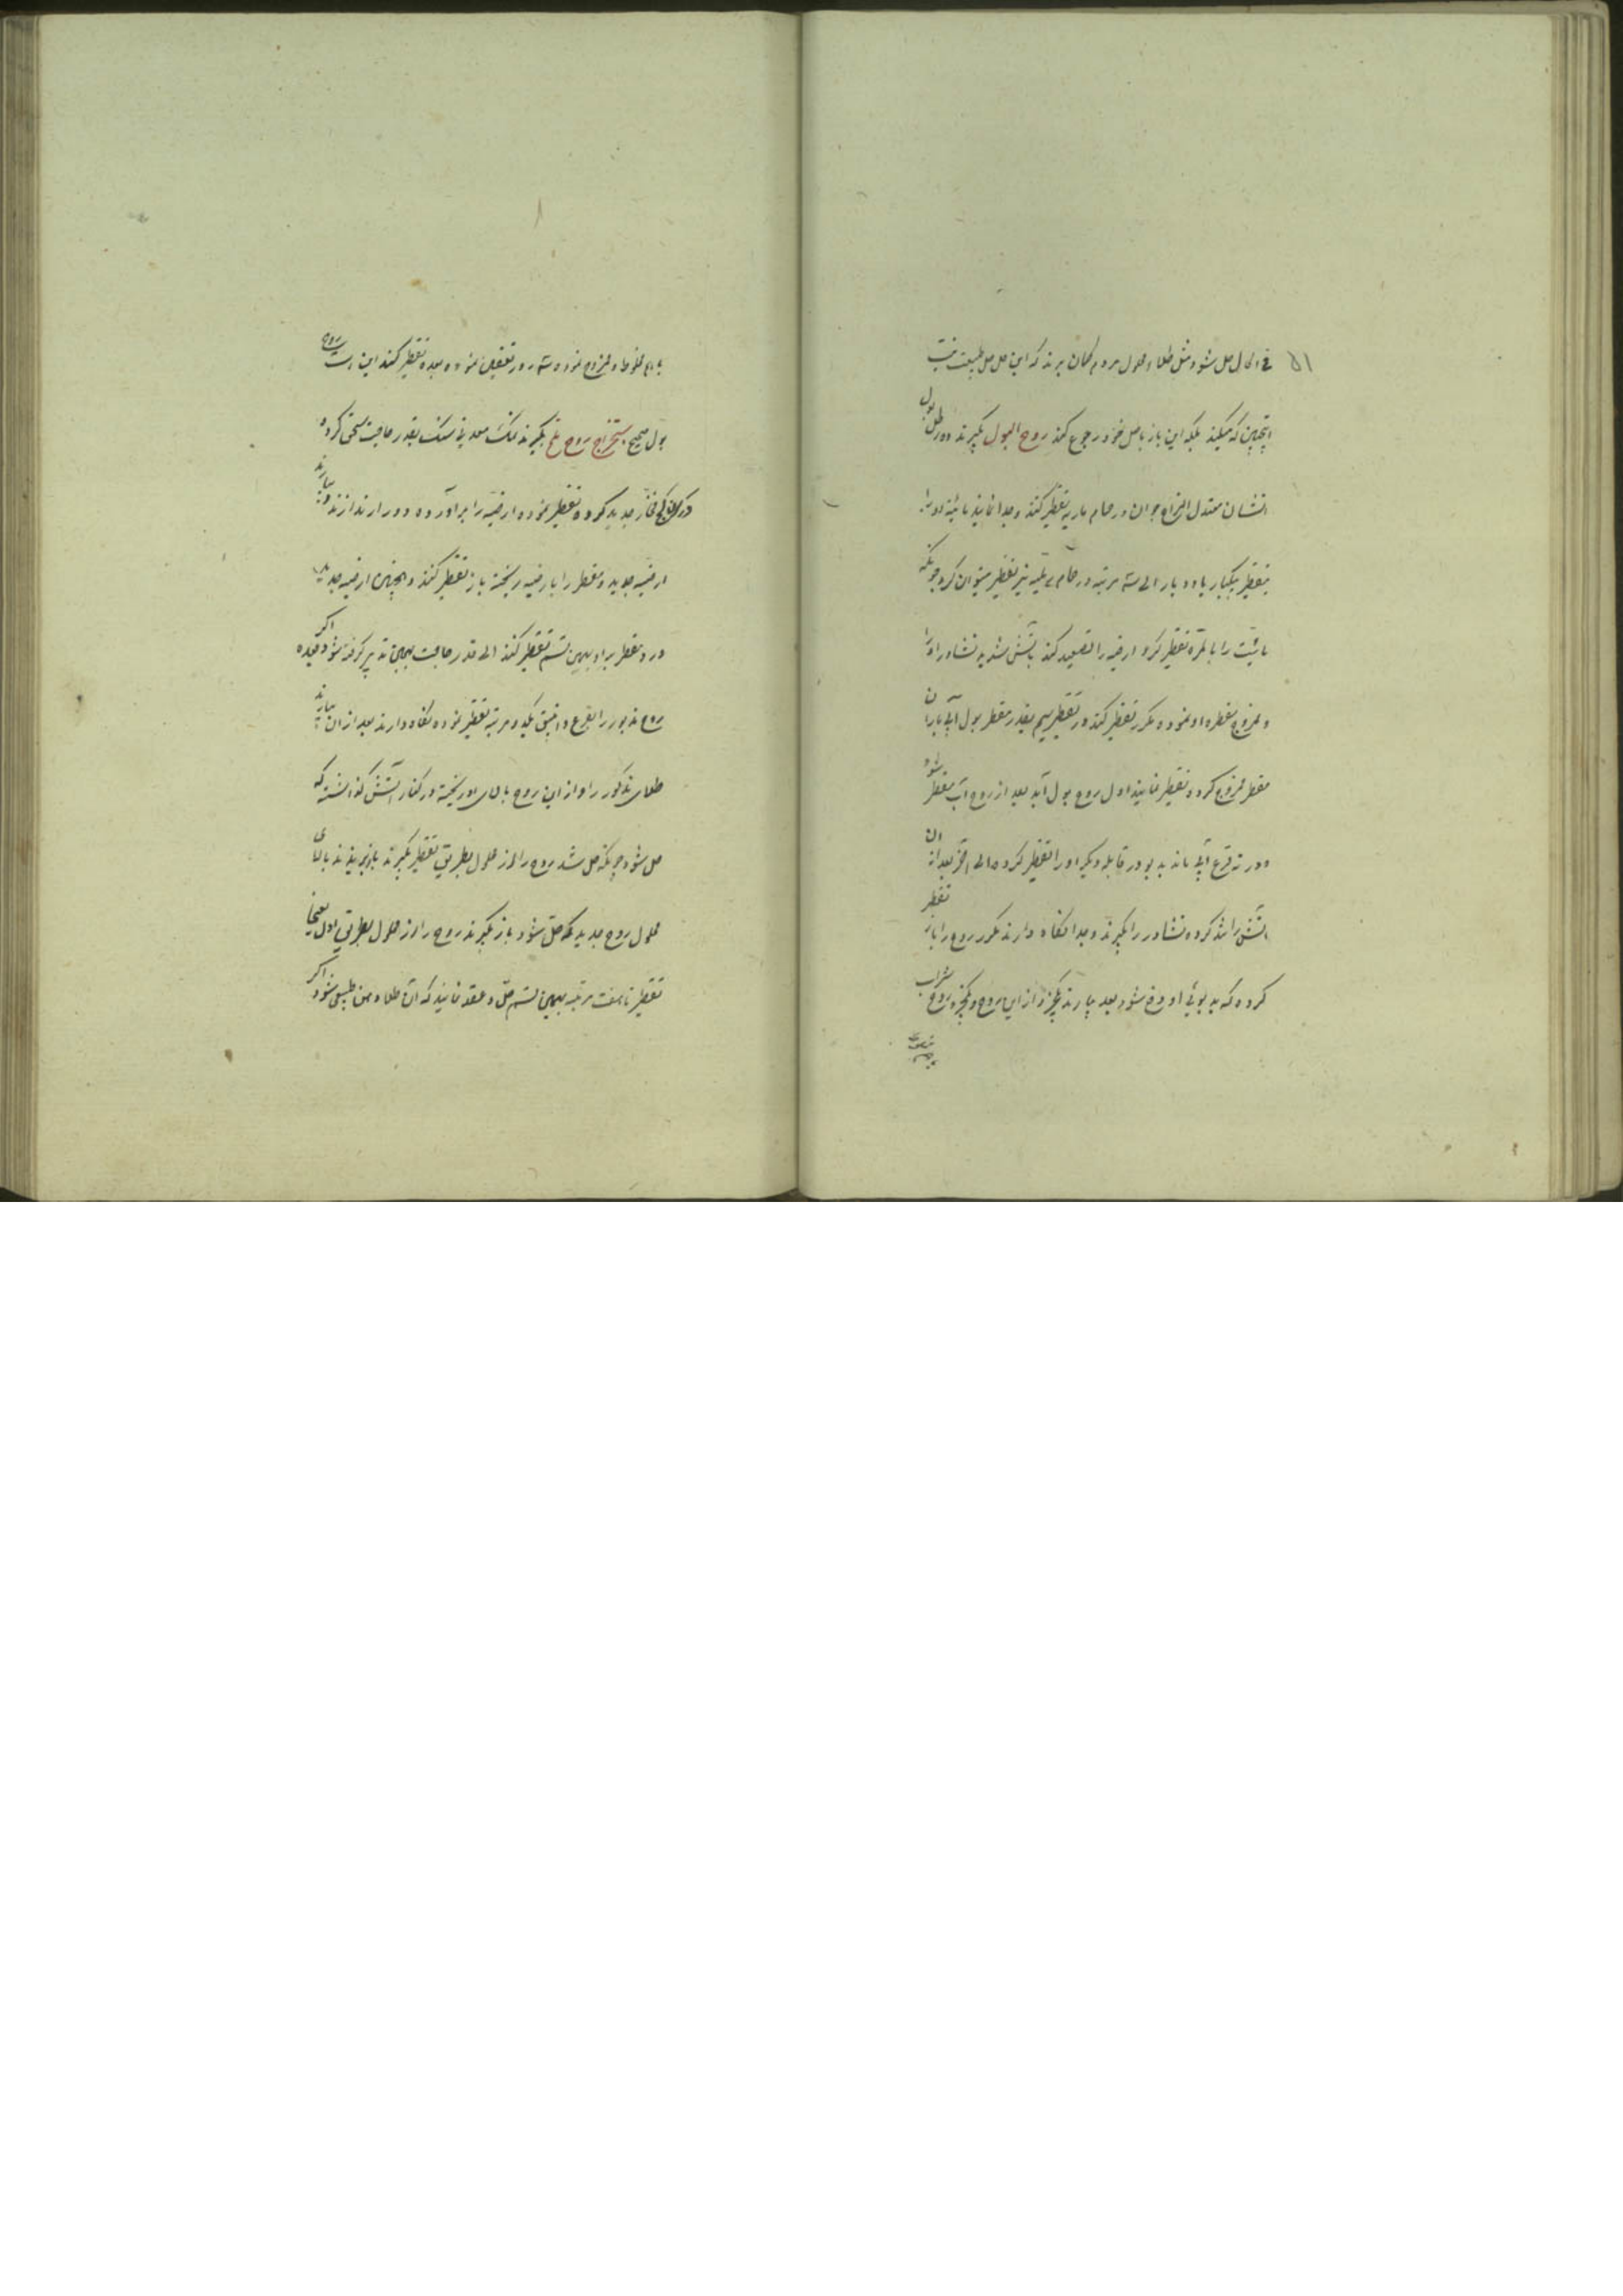 ۵۱
فی الحال حل شود مثل طلاء محلول مردم گمان برند که این حل حل طبیعت نیست
اینچنین که میکند بلکه این باز باصل خود رجوع کند روح البول بگیرند دو رطل بول
انسان معتدل المزاج جوان در حمام ماریه تقطیر کنند و جدا نمایند مائیة او را
بتقطیر یکبار یا دو بار الی سه مرتبه در حمام تقطیر میتوان کرد چونکه
مائیت را بالمره تقطیر کرد ارضیه را تصعید کند بآتش شدید نشادر او را
و ممزوج مقطره او نموده مکرر تقطیر کنند در تقطیر سیم بقدر مقطر بول آب باران
مقطر ممزوج کرده تقطیر نمایند اول روح بول آید بعد از روح آب مقطر شود
و در ته قرع آبی ماند بد بو در قابله دیگر او را تقطیر کرده الی آخر بعد از ان
آتش را تند کرده نشادر را بگیرند و جدا نگاه دارند مکرر روح را باز تقطر
کرده که بد بوئی او رفع شود بعد بیارند یکجزو از این روح و یکجزو روح شراب
باهم مخلوط و ممزوج نموده سه روز تعفین نموده بعده تقطیر کنند این است روح
بول صحیح استخراج روح ملح بگیرند نمک معدنی سنگ بقدر حاجت سحق کرده
در کوزه فخار جدید کرده تقطیر نموده ارضیه را برآورده دور اندازند و بیارند
ارضیه جدید و مقطر را بارضیه ریخته باز تقطیر کنند و همچنین ارضیه جدید
و رد مقطر بر او بهمین قسم تقطیر کنند الی قدر حاجت بهمین تدبیر گرفته شود بعده اگر
روح مذبور را بقرع و انبیق یکدو مرتبه تقطیر نموده نگاه دارند بعد از ان بیارند
طلای مذکور را و از این روح بالای او ریخته در کنار آتش گذاشته که
حل شود چونکه حل شد روح را از محلول بطریق تقطیر بگیرند باز بریزند بالای
محلول روح جدید که حل شود باز بگیرند روح را از محلول بطریق اول یعنی با
تقطیر تا هفت مرتبه بهمین قسم حل و عقد نمایند که آن طلاء دهن طبیعی شود اگر